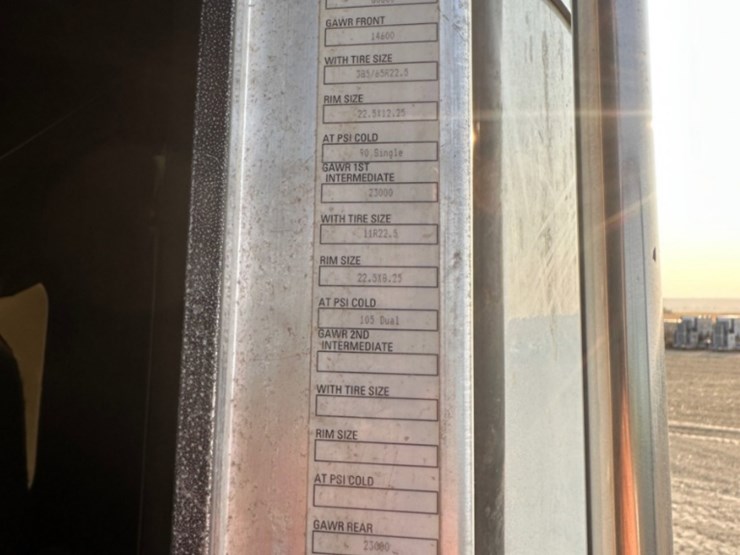 GAWR FRONT
14600
WITH TIRE SIZE
385/65R22.5
RIM SIZE
22.5X12.25
AT PSI COLD
90 Single
GAWR 1ST
INTERMEDIATE
23000
WITH TIRE SIZE
11R22.5
RIM SIZE
22.5X8.25
AT PSI COLD
105 Dual
GAWR 2ND
INTERMEDIATE
WITH TIRE SIZE
RIM SIZE
AT PSI COLD
GAWR REAR
23000